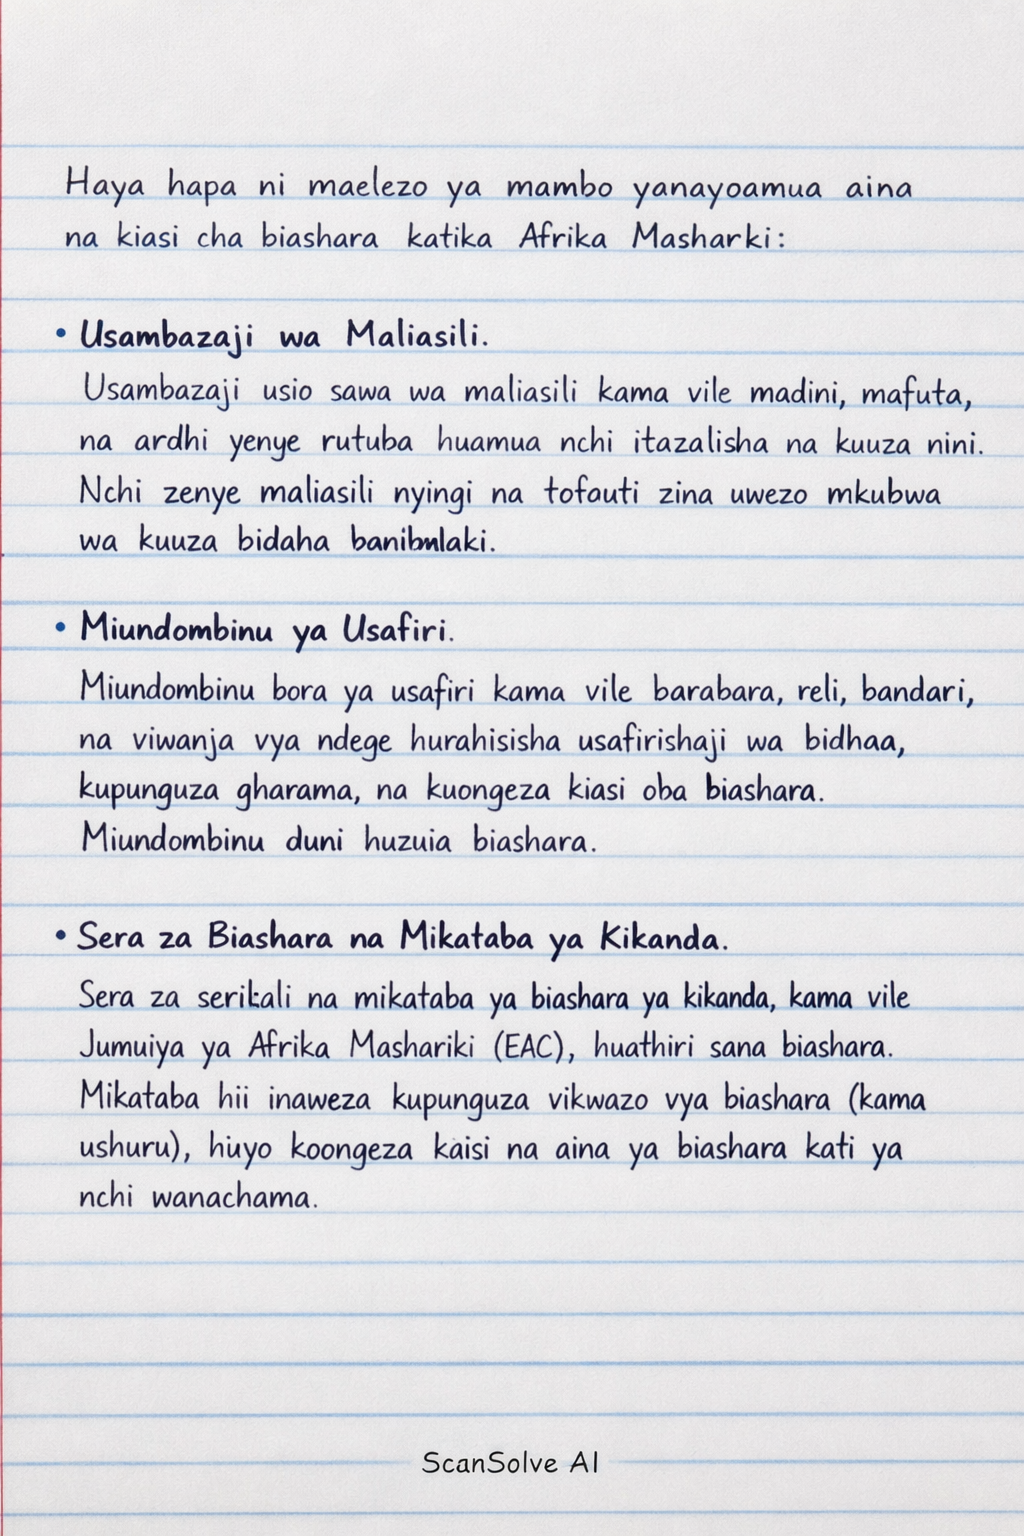 Haya hapa ni maelezo ya mambo yanayoamua aina
na kiasi cha biashara katika Afrika Masharki:
• Usambazaji wa Maliasili.
Usambazaji usio sawa wa maliasili kama vile madini, mafuta,
na ardhi yenye rutuba huamua nchi itazalisha na kuuza nini.
Nchi zenye maliasili nyingi na tofouti zina uwezo mkubwa
wa kuuza bidaha
• Miundombinu ya Usafiri.
Miundombinu bora ya usafiri kama vile barabara, reli, bandari,
na viwanja vya ndege hurahisisha usafirishaji wa bidhaa,
kupunguza gharama, na kuongeza kiasi oba biashara.
Miundombinu duni huzuia biashara.
• Sera za Biashara na Mikataba ya Kikanda.
Sera za na mikataba ya biashara ya kikanda, kama vile
Jumuiya ya Afrika Mashariki (EAC), huathiri sana biashara.
Mikataba hii inaweza kupunguza vikwazo vya biashara (kama
ushuru), huyo koongeza kaisi na aina ya biashara kati ya
nchi wanachama.
ScanSolve AI